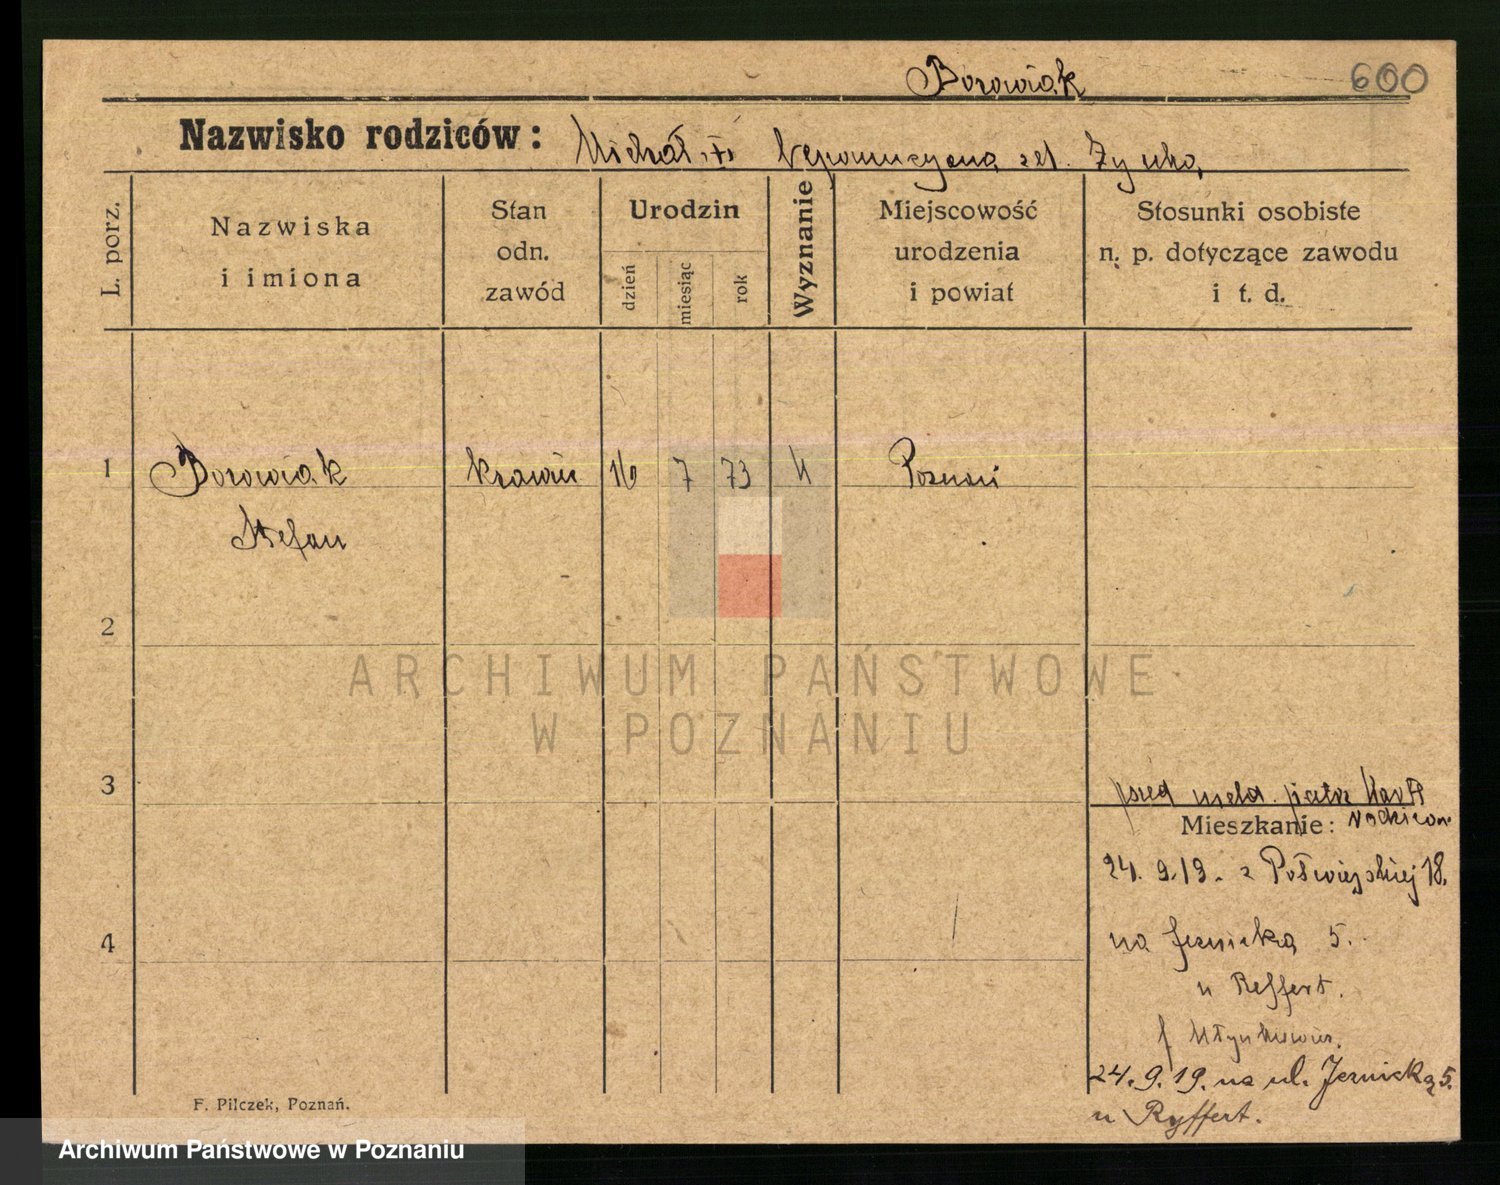 Borowiak 600
Nazwisko rodziców: Michał Nepomucyena
L. porz.
Nazwiska
i imiona
Stan
odn.
zawód
Urodzin
dzień
miesiąc
rok
Wyznanie
Miejscowość
urodzenia
i powiat
Stosunki osobiste
n. p. dotyczące zawodu
i t. d.
1 Borowiak krawiec 16 7 73 k Poznań
Stefan
2
ARCHIWUM PAŃSTWOWE
W POZNANIU
3
meld. patrz
Mieszkanie:
24. 9. 19. z Półwiejskiej 18.
4
na Jeżnicką 5.
u Reffert.
24. 9. 19. na ul. Jeżnicką 5.
u Ryffert.
F. Pilczek, Poznań.
Archiwum Państwowe w Poznaniu